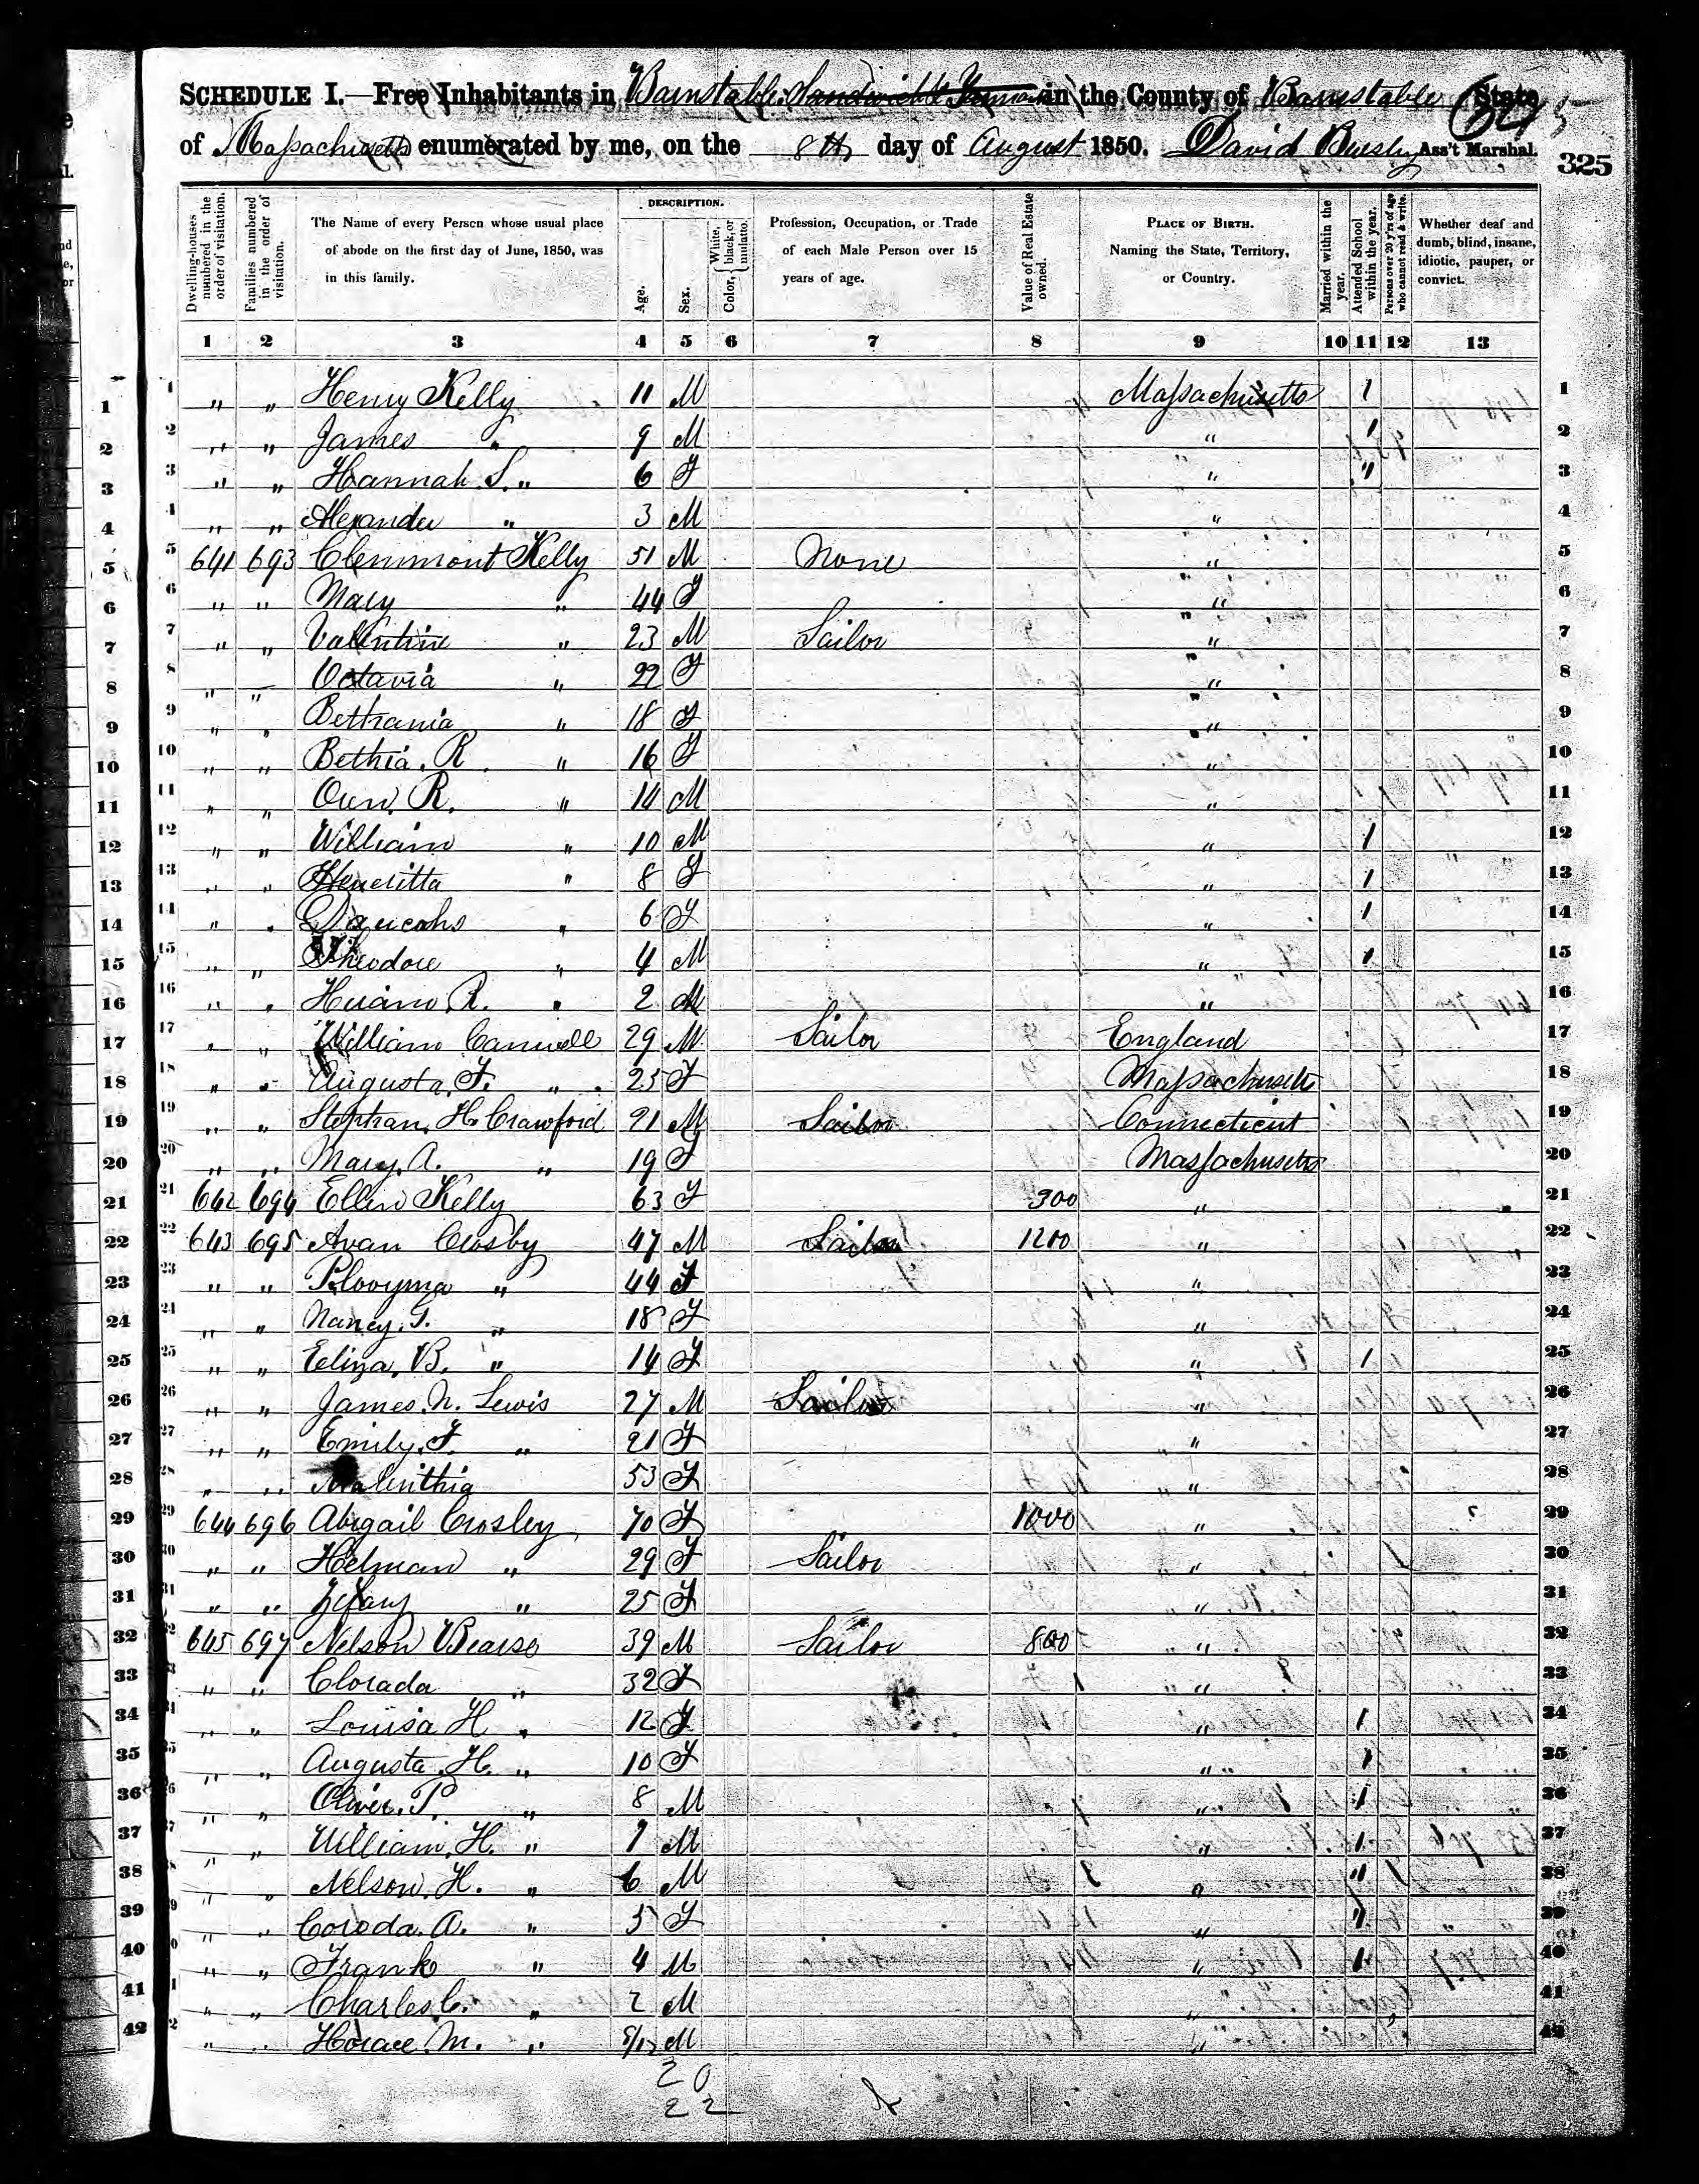 SCHEDULE I.—Free Inhabitants in Barnstable, in the County of Barnstable State
of Massachusetts enumerated by me, on the 8th day of August 1850. David Bursley Ass't Marshal.
325
Dwelling-houses numbered in the order of visitation.
Families numbered in the order of visitation.
The Name of every Person whose usual place of abode on the first day of June, 1850, was in this family.
DESCRIPTION.
Age.
Sex.
Color, { White, black, or mulatto.
Profession, Occupation, or Trade of each Male Person over 15 years of age.
Value of Real Estate owned.
PLACE OF BIRTH. Naming the State, Territory, or Country.
Married within the year.
Attended School within the year.
Persons over 20 y'rs of age who cannot read & write.
Whether deaf and dumb, blind, insane, idiotic, pauper, or convict.
1 2 3 4 5 6 7 8 9 10 11 12 13
1 " " Henry Kelly 11 M Massachusetts 1 1
2 " " James " 9 M " 1 2
3 " " Hannah S. " 6 F " 1 3
4 " " Alexander " 3 M " 4
5 641 693 Clemmont Kelly 51 M None " 5
6 " " Mary " 44 F " 6
7 " " Valentine " 23 M Sailor " 7
8 " " Octavia " 22 F " 8
9 " " Bethania " 18 F " 9
10 " " Bethia. R. " 16 F " 10
11 " " R. " 14 M " 11
12 " " William " 10 M " 1 12
13 " " Heneritta " 8 F " 1 13
14 " " " 6 F " 1 14
15 " " Theodore " 4 M " 1 15
16 " " Hiram R. " 2 M " 16
17 " " William 29 M Sailor England 17
18 " " Augusta. F. " 25 F Massachusetts 18
19 " " Stephan. H. Crawford 21 M Sailor Connecticut 19
20 " " Mary. A. " 19 F Massachusetts 20
21 642 694 Ellen Kelly 63 F 300 " 21
22 643 695 Avan Crosby 47 M Sailor 1200 " 22
23 " " " 44 F " 23
24 " " Nancy. T. " 18 F " 24
25 " " Eliza. B. " 14 F " 1 25
26 " " James. N. Lewis 27 M Sailor " 26
27 " " Emily. F. " 21 F " 27
28 " " 53 F " 28
29 644 696 Abigail Crosby 70 F 1000 " 29
30 " " Helman " 29 F Sailor " 30
31 " " " 25 F " 31
32 645 697 Nelson Bearse 39 M Sailor 800 " 32
33 " " Clorada " 32 F " 33
34 " " Louisa H. " 12 F " 1 34
35 " " Augusta. H. " 10 F " 1 35
36 " " Oliver. P. " 8 M " 1 36
37 " " William. H. " 7 M " 1 37
38 " " Nelson. H. " 6 M " 1 38
39 " " Coroda. A. " 5 F " 1 39
40 " " Frank " 4 M " 1 40
41 " " Charles C. " 2 M " 41
42 " " Horace. M. " 8/12 M " 42
20
22